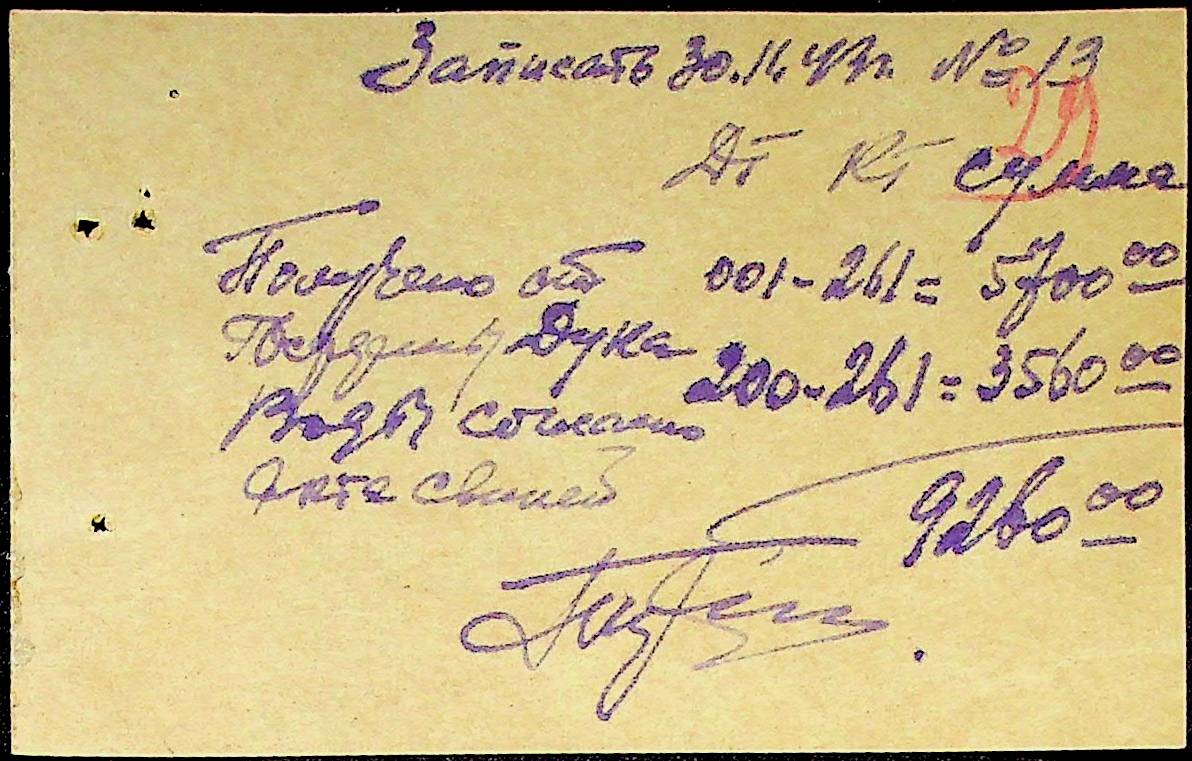 Записать 30.11.43 г. № 13
29
Дт Кт сумма
Получено от 001-261= 5700 00
Дука 200-261= 3560 00
согласно
акта свиней
9260 00